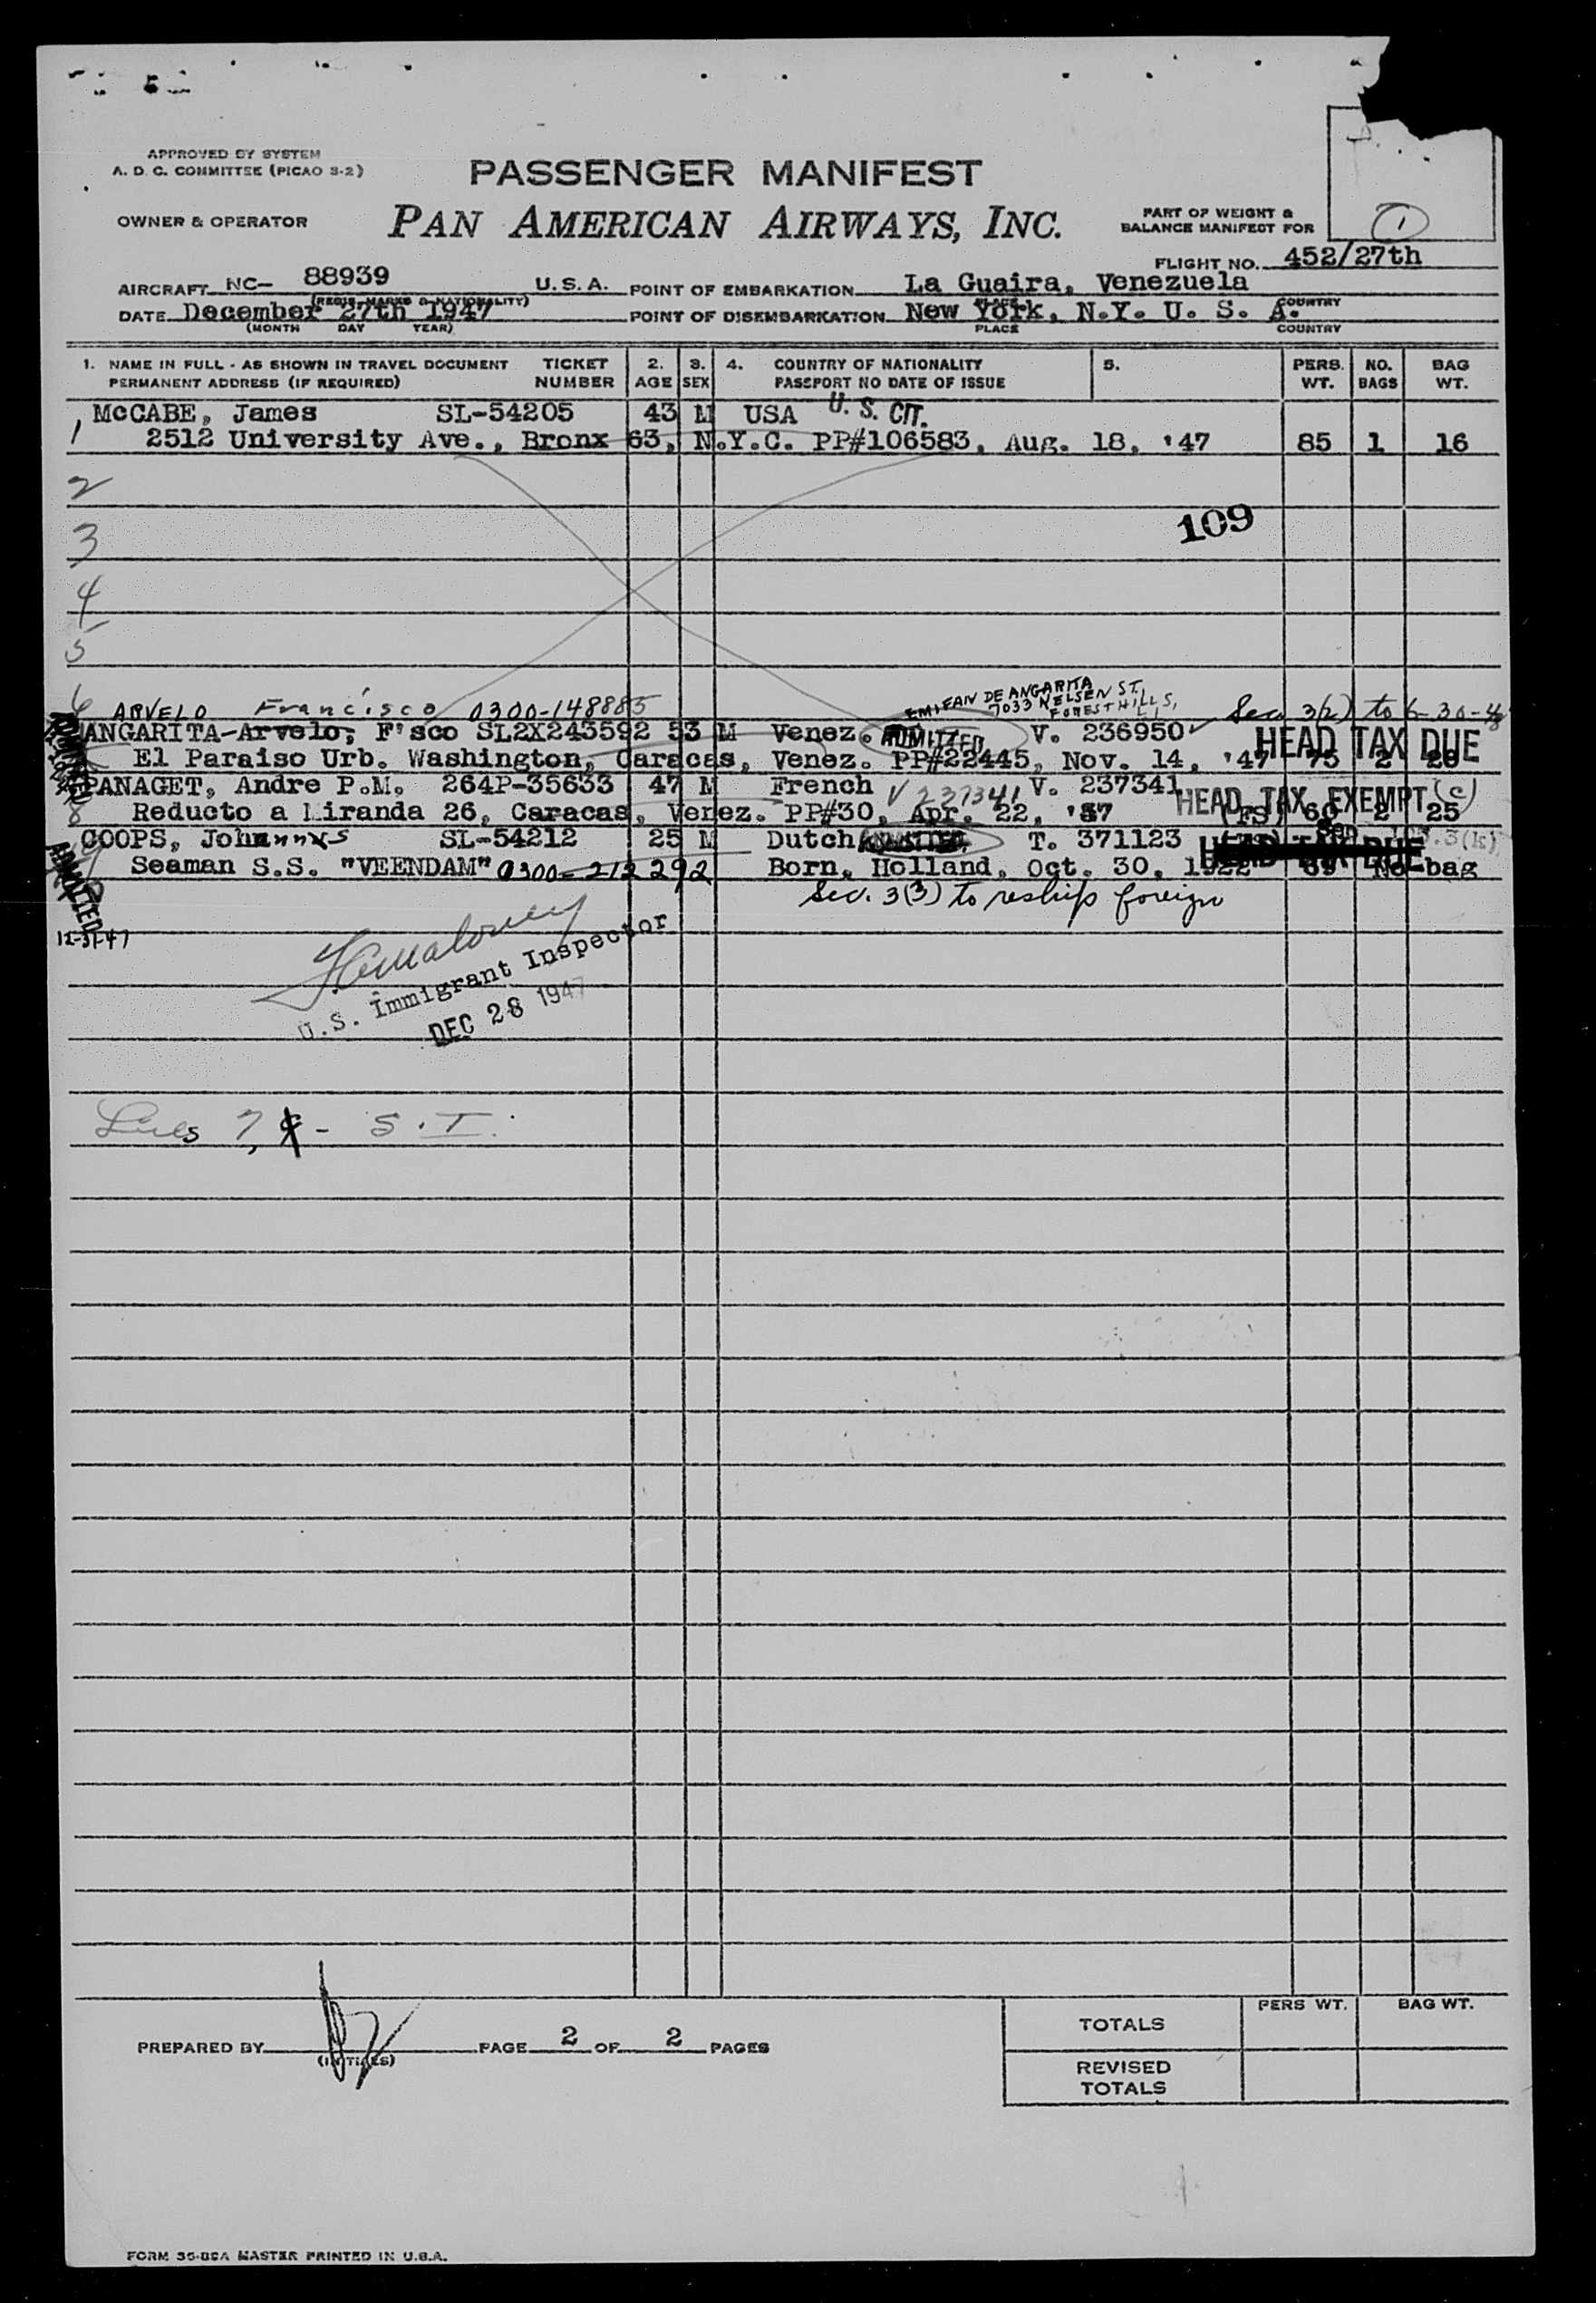 APPROVED BY SYSTEM
A. D. C. COMMITTEE (PICAO S-2)
PASSENGER MANIFEST
OWNER & OPERATOR
PAN AMERICAN AIRWAYS, INC.
PART OF WEIGHT &
BALANCE MANIFEST FOR
1
FLIGHT NO. 452/27th
AIRCRAFT NC- 88939 U.S.A. POINT OF EMBARKATION La Guaira, Venezuela
(REGIS. MARKS & NATIONALITY) PLACE COUNTRY
DATE December 27th 1947 POINT OF DISEMBARKATION New York, N.Y. U. S. A.
(MONTH DAY YEAR) PLACE COUNTRY
1. NAME IN FULL - AS SHOWN IN TRAVEL DOCUMENT TICKET 2. 3. 4. COUNTRY OF NATIONALITY 5. PERS. NO. BAG
PERMANENT ADDRESS (IF REQUIRED) NUMBER AGE SEX PASSPORT NO DATE OF ISSUE WT. BAGS WT.
McCABE, James SL-54205 43 M USA U. S. CIT.
1 2512 University Ave., Bronx 63, N.Y.C. PP#106583, Aug. 18, '47 85 1 16
2
109
3
4
5
6 ARVELO Francisco 0300-148885 DE ANGARITA
7033 NELSEN ST.
FOREST HILLS,
L.I.
Sec 3(2) to 6-30-48
ANGARITA-Arvelo, F'sco SL2X243592 53 M Venez. ADMITTED V. 236950 HEAD TAX DUE
El Paraiso Urb. Washington, Caracas, Venez. PP#22445, Nov. 14, '47 75 2 26
PANAGET, Andre P.M. 264P-35633 47 M French V 237341 V. 237341 HEAD TAX EXEMPT (c)
8 Reducto a Miranda 26, Caracas, Venez. PP#30, Apr. 22, '37 (FS) 60 2 25
COOPS, Johannes SL-54212 25 M Dutch T. 371123 HEAD TAX DUE Sec. 3(k)
Seaman S.S. "VEENDAM" 0300-212292 Born, Holland, Oct. 30, 1922 69 No-bag
Sec. 3(3) to reship foreign
ADMITTED
12-31-47
U.S. Immigrant Inspector
DEC 28 1947
7, 9 - S.I.
PREPARED BY (INITIALS) PAGE 2 OF 2 PAGES
PERS WT. BAG WT.
TOTALS
REVISED
TOTALS
FORM 36-89A MASTER PRINTED IN U.S.A.